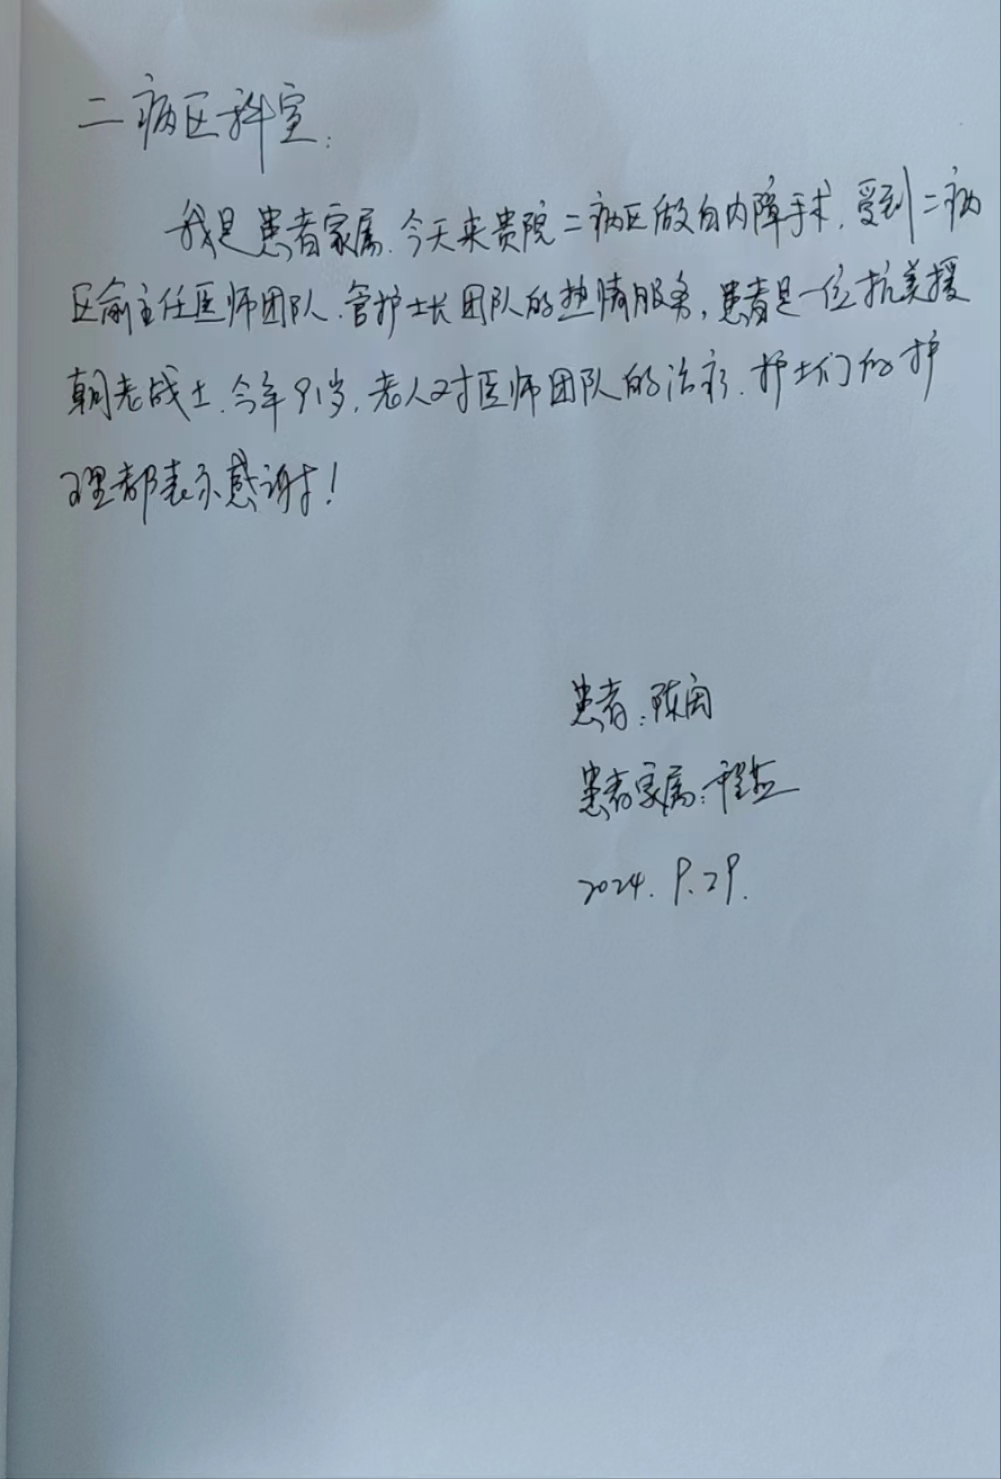 二病区科室:
我是患者家属.今天来贵院二病区做白内障手术.受到二病
区俞主任医师团队.管护士长团队的热情服务,患者是一位抗美援
朝老战士.今年91岁.老人对医师团队的治疗.护士们的护
理都表示感谢!
患者:陈闵
患者家属:程
2024.9.29.